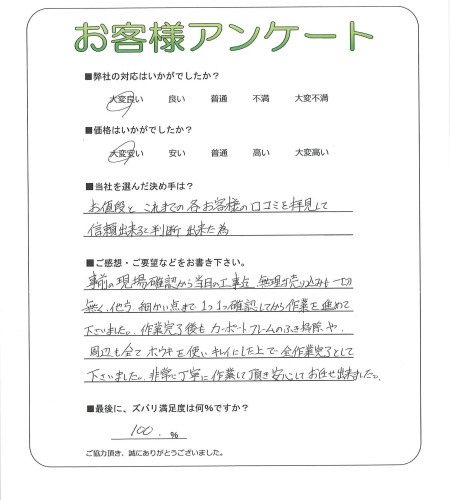 お客様アンケート
■弊社の対応はいかがでしたか？
大変良い 良い 普通 不満 大変不満
■価格はいかがでしたか？
大変安い 安い 普通 高い 大変高い
■当社を選んだ決め手は？
お値段と これまでの各お客様の口コミを拝見して
信頼出来ると判断出来た為
■ご感想・ご要望などをお書き下さい。
事前の現場確認から当日の工事迄、無理な売り込みも一切
無く、 細かい点まで1つ1つ確認してから作業を進めて
下さいました。作業完了後もカーポートフレームのふき掃除や、
周辺も全てホウキを使いキレイにした上で全作業完了として
下さいました。非常に丁寧に作業して頂き安心してお任せ出来ました。
■最後に、ズバリ満足度は何％ですか？
100. ％
ご協力頂き、誠にありがとうございました。